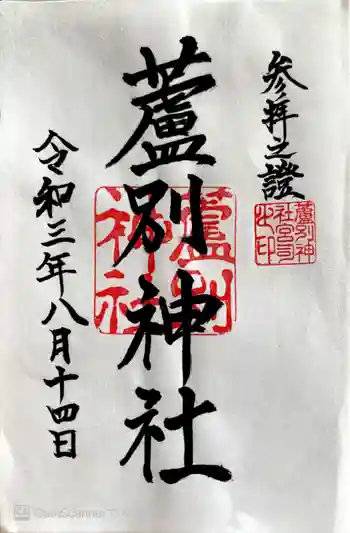 参拝之證
蘆別神
社宮司
之印
蘆別神社
蘆別
神社
令和三年八月十四日
CamScanner